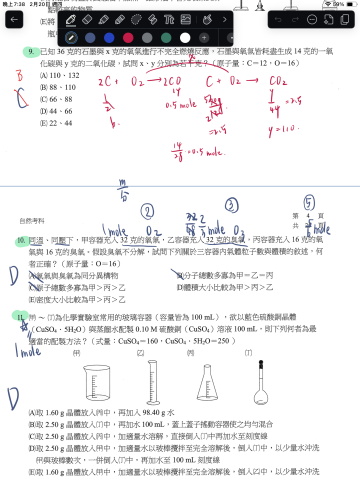 晚上7:38 2月20日 週四
9. 已知 36 克的石墨與 x 克的氧氣進行不完全燃燒反應，石墨與氧氣皆耗盡生成 14 克的一氧
化碳與 y 克的二氧化碳，試問 x、y 分別為若干克？（原子量：C＝12，O＝16）
(A) 110、132
(B) 88、110
(C) 66、88
(D) 44、66
(E) 22、44
2C + O₂ → 2CO
C + O₂ → CO₂
0.5 mole
=2.5
y=110
=0.5 mole
自然考科
第 4 頁
② ③ ⑤
1 mole O₂
O₃
10. 同溫、同壓下，甲容器充入 32 克的氧氣，乙容器充入 32 克的臭氧，丙容器充入 16 克的氧
氣與 16 克的臭氧。假設臭氧不分解，試問下列關於三容器內氣體粒子數與體積的敘述，何
者正確？（原子量：O＝16）
D
(A)氧氣與臭氧為同分異構物
(B)分子總數多寡為甲＝乙＝丙
(C)原子總數多寡為甲＞丙＞乙
(D)體積大小比較為甲＞丙＞乙
(E)密度大小比較為甲＞丙＞乙
11. 甲～丁為化學實驗室常用的玻璃容器（容量皆為 100 mL），欲以藍色硫酸銅晶體
（CuSO₄．5H₂O）與蒸餾水配製 0.10 M 硫酸銅（CuSO₄）溶液 100 mL，則下列何者為最
適當的配製方法？（式量：CuSO₄＝160，CuSO₄．5H₂O＝250）
1 mole
甲 乙 丙 丁
D
(A)取 1.60 g 晶體放入丙中，再加入 98.40 g 水
(B)取 2.50 g 晶體放入丁中，再加水 100 mL，蓋上蓋子搖動容器使之均勻混合
(C)取 2.50 g 晶體放入丙中，加適量水溶解，直接倒入丁中再加水至刻度線
(D)取 2.50 g 晶體放入甲中，加適量水以玻棒攪拌至完全溶解後，倒入丁中，以少量水沖洗
甲與玻棒數次，一併倒入丁中，再加水至 100 mL 刻度線
(E)取 1.60 g 晶體放入甲中，加適量水以玻棒攪拌至完全溶解後，倒入乙中，以少量水沖洗